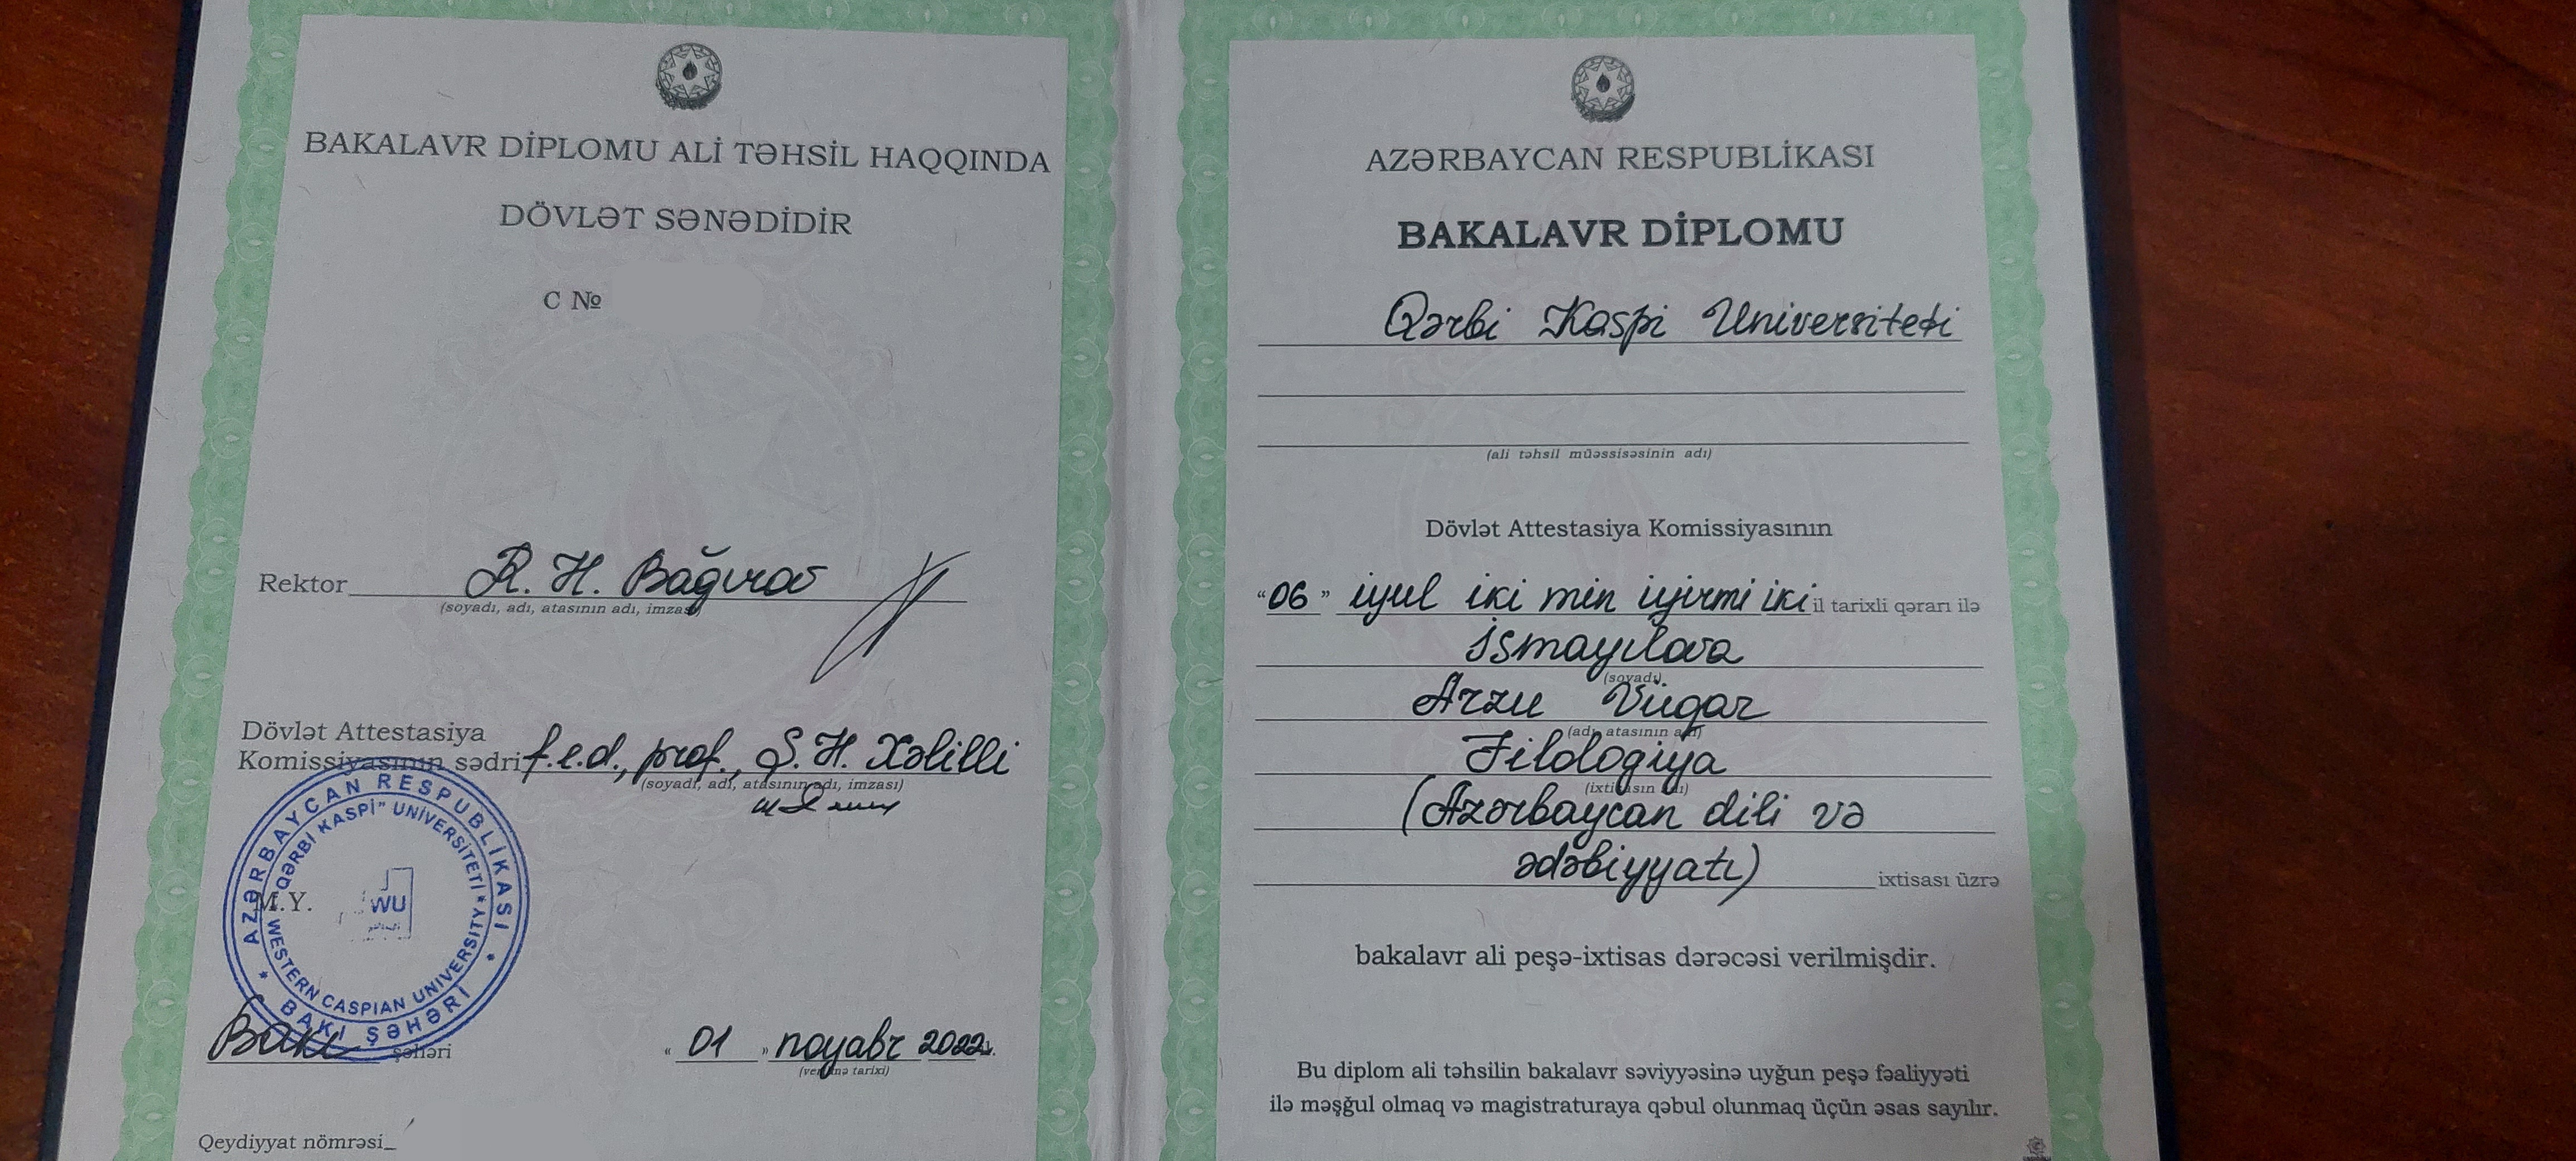 BAKALAVR DİPLOMU ALİ TƏHSİL HAQQINDA
DÖVLƏT SƏNƏDİDİR
C №
Rektor R. H. Bağırov
(soyadı, adı, atasının adı, imzası)
Dövlət Attestasiya
Komissiyasının sədri f.e.d., prof., Ş. H. Xəlilli
(soyadı, adı, atasının adı, imzası)
AZƏRBAYCAN RESPUBLİKASI
BAKI ŞƏHƏRİ
"QƏRBİ KASPİ" UNİVERSİTETİ
WESTERN CASPIAN UNIVERSITY
WU
M.Y.
Bakı şəhəri
"01" noyabr 2022
(verilmə tarixi)
Qeydiyyat nömrəsi
AZƏRBAYCAN RESPUBLİKASI
BAKALAVR DİPLOMU
Qərbi Kaspi Universiteti
(ali təhsil müəssisəsinin adı)
Dövlət Attestasiya Komissiyasının
"06" iyul iki min iyirmi iki il tarixli qərarı ilə
İsmayılova
(soyadı)
Arzu Vüqar
(adı, atasının adı)
Filologiya
(ixtisasın adı)
(Azərbaycan dili və
ədəbiyyatı) ixtisası üzrə
bakalavr ali peşə-ixtisas dərəcəsi verilmişdir.
Bu diplom ali təhsilin bakalavr səviyyəsinə uyğun peşə fəaliyyəti
ilə məşğul olmaq və magistraturaya qəbul olunmaq üçün əsas sayılır.